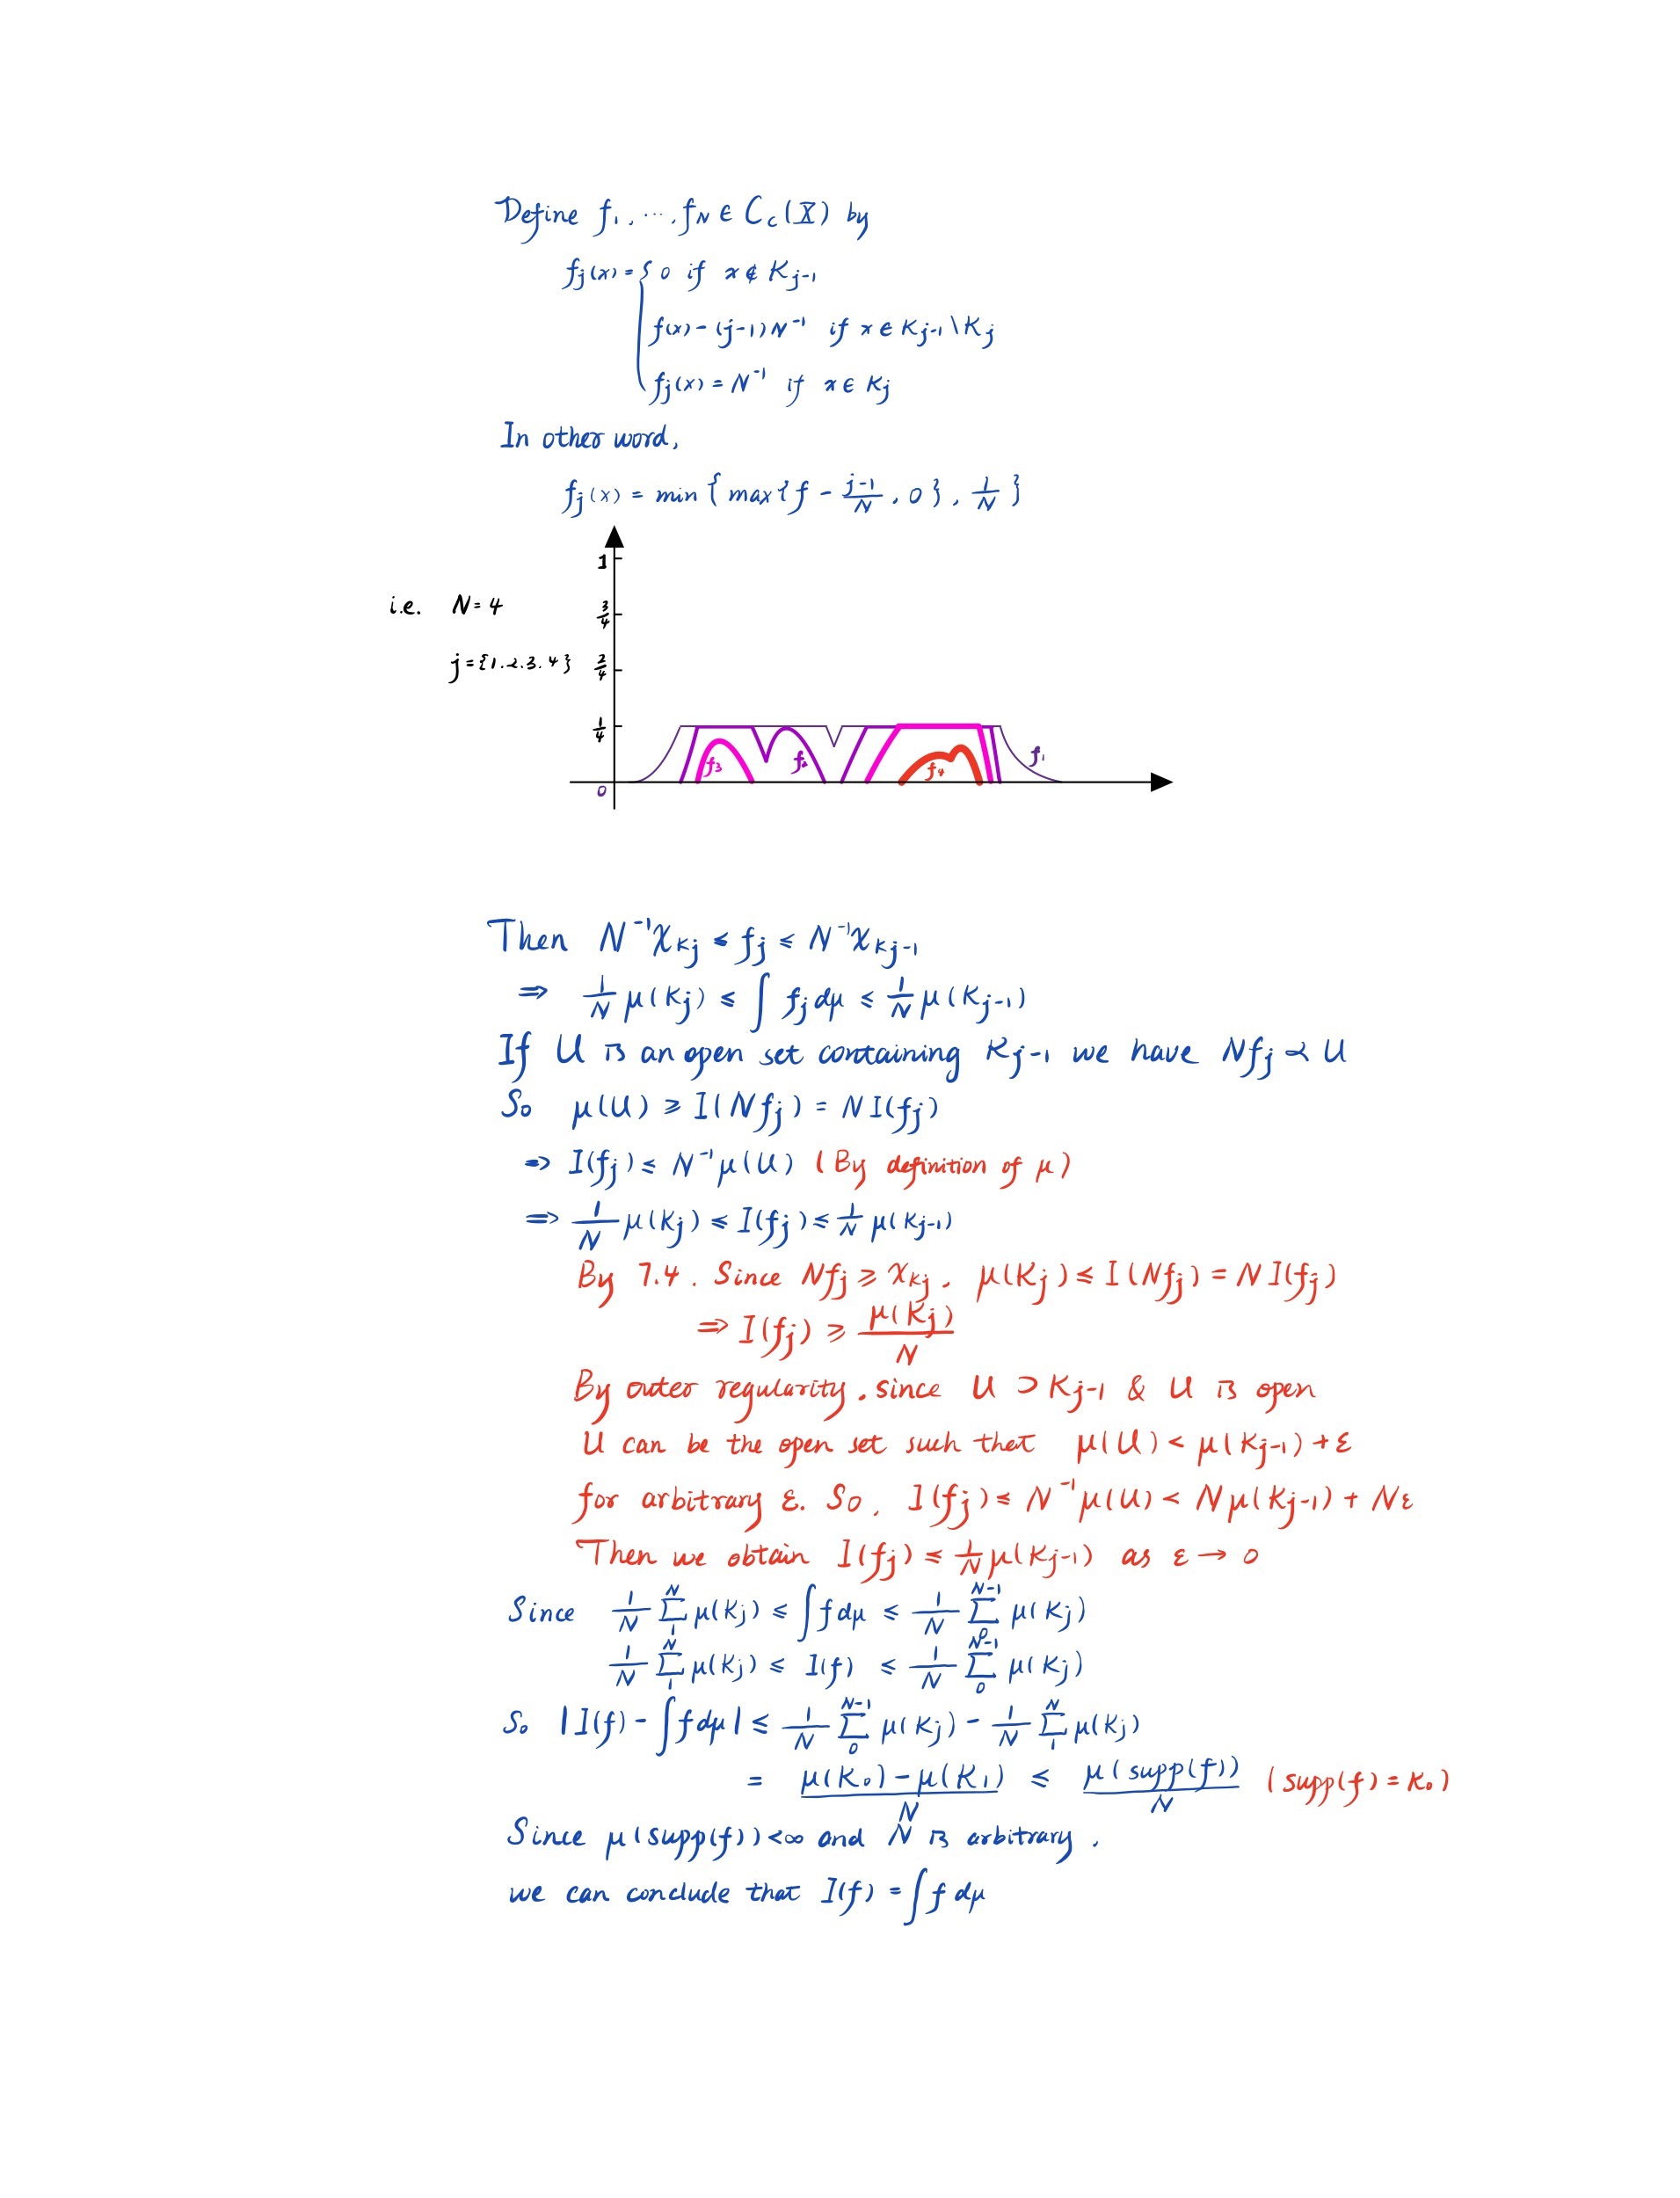 Define f₁, ⋯, f_N ∈ C_c(X) by
f_j(x) = { 0 if x ∉ K_{j-1}
f(x) - (j-1)N⁻¹ if x ∈ K_{j-1} \ K_j
f_j(x) = N⁻¹ if x ∈ K_j
In other word,
f_j(x) = min { max { f - \frac{j-1}{N}, 0 }, \frac{1}{N} }
1
i.e. N = 4
3/4
j = {1.2.3.4}
2/4
1/4
f₃ f₂ f₄ f₁
0
Then N⁻¹χ_{K_j} ≤ f_j ≤ N⁻¹χ_{K_{j-1}}
⇒ \frac{1}{N} μ(K_j) ≤ ∫ f_j dμ ≤ \frac{1}{N} μ(K_{j-1})
If U is an open set containing K_{j-1} we have Nf_j ≺ U
So μ(U) ≥ I(Nf_j) = N I(f_j)
⇒ I(f_j) ≤ N⁻¹μ(U) (By definition of μ)
⇒ \frac{1}{N} μ(K_j) ≤ I(f_j) ≤ \frac{1}{N} μ(K_{j-1})
By 7.4. Since Nf_j ≥ χ_{K_j}, μ(K_j) ≤ I(Nf_j) = N I(f_j)
⇒ I(f_j) ≥ \frac{μ(K_j)}{N}
By outer regularity, since U ⊃ K_{j-1} & U is open
U can be the open set such that μ(U) < μ(K_{j-1}) + ε
for arbitrary ε. So, I(f_j) ≤ N⁻¹μ(U) < Nμ(K_{j-1}) + Nε
Then we obtain I(f_j) ≤ \frac{1}{N} μ(K_{j-1}) as ε → 0
Since \frac{1}{N} \sum_1^N μ(K_j) ≤ ∫ f dμ ≤ \frac{1}{N} \sum_0^{N-1} μ(K_j)
\frac{1}{N} \sum_1^N μ(K_j) ≤ I(f) ≤ \frac{1}{N} \sum_0^{N-1} μ(K_j)
So | I(f) - ∫ f dμ | ≤ \frac{1}{N} \sum_0^{N-1} μ(K_j) - \frac{1}{N} \sum_1^N μ(K_j)
= \frac{μ(K_0) - μ(K_1)}{N} ≤ \frac{μ(supp(f))}{N} (supp(f) = K_0)
Since μ(supp(f)) < ∞ and N is arbitrary,
we can conclude that I(f) = ∫ f dμ